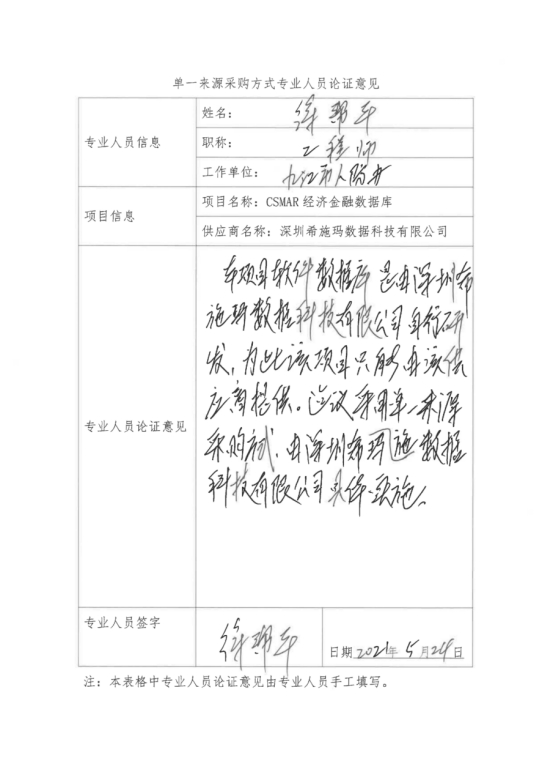 单一来源采购方式专业人员论证意见
专业人员信息
姓名：徐 平
职称：工程师
工作单位：九江市人防办
项目信息
项目名称：CSMAR 经济金融数据库
供应商名称：深圳希施玛数据科技有限公司
专业人员论证意见
本项目软件数据库是由深圳希
施玛数据科技有限公司自行研
发，为此该项目只能由该供
应商提供。建议采用单一来源
采购方式，由深圳希玛施数据
科技有限公司具体实施。
专业人员签字
徐 平
日期 2021年 5月24日
注：本表格中专业人员论证意见由专业人员手工填写。